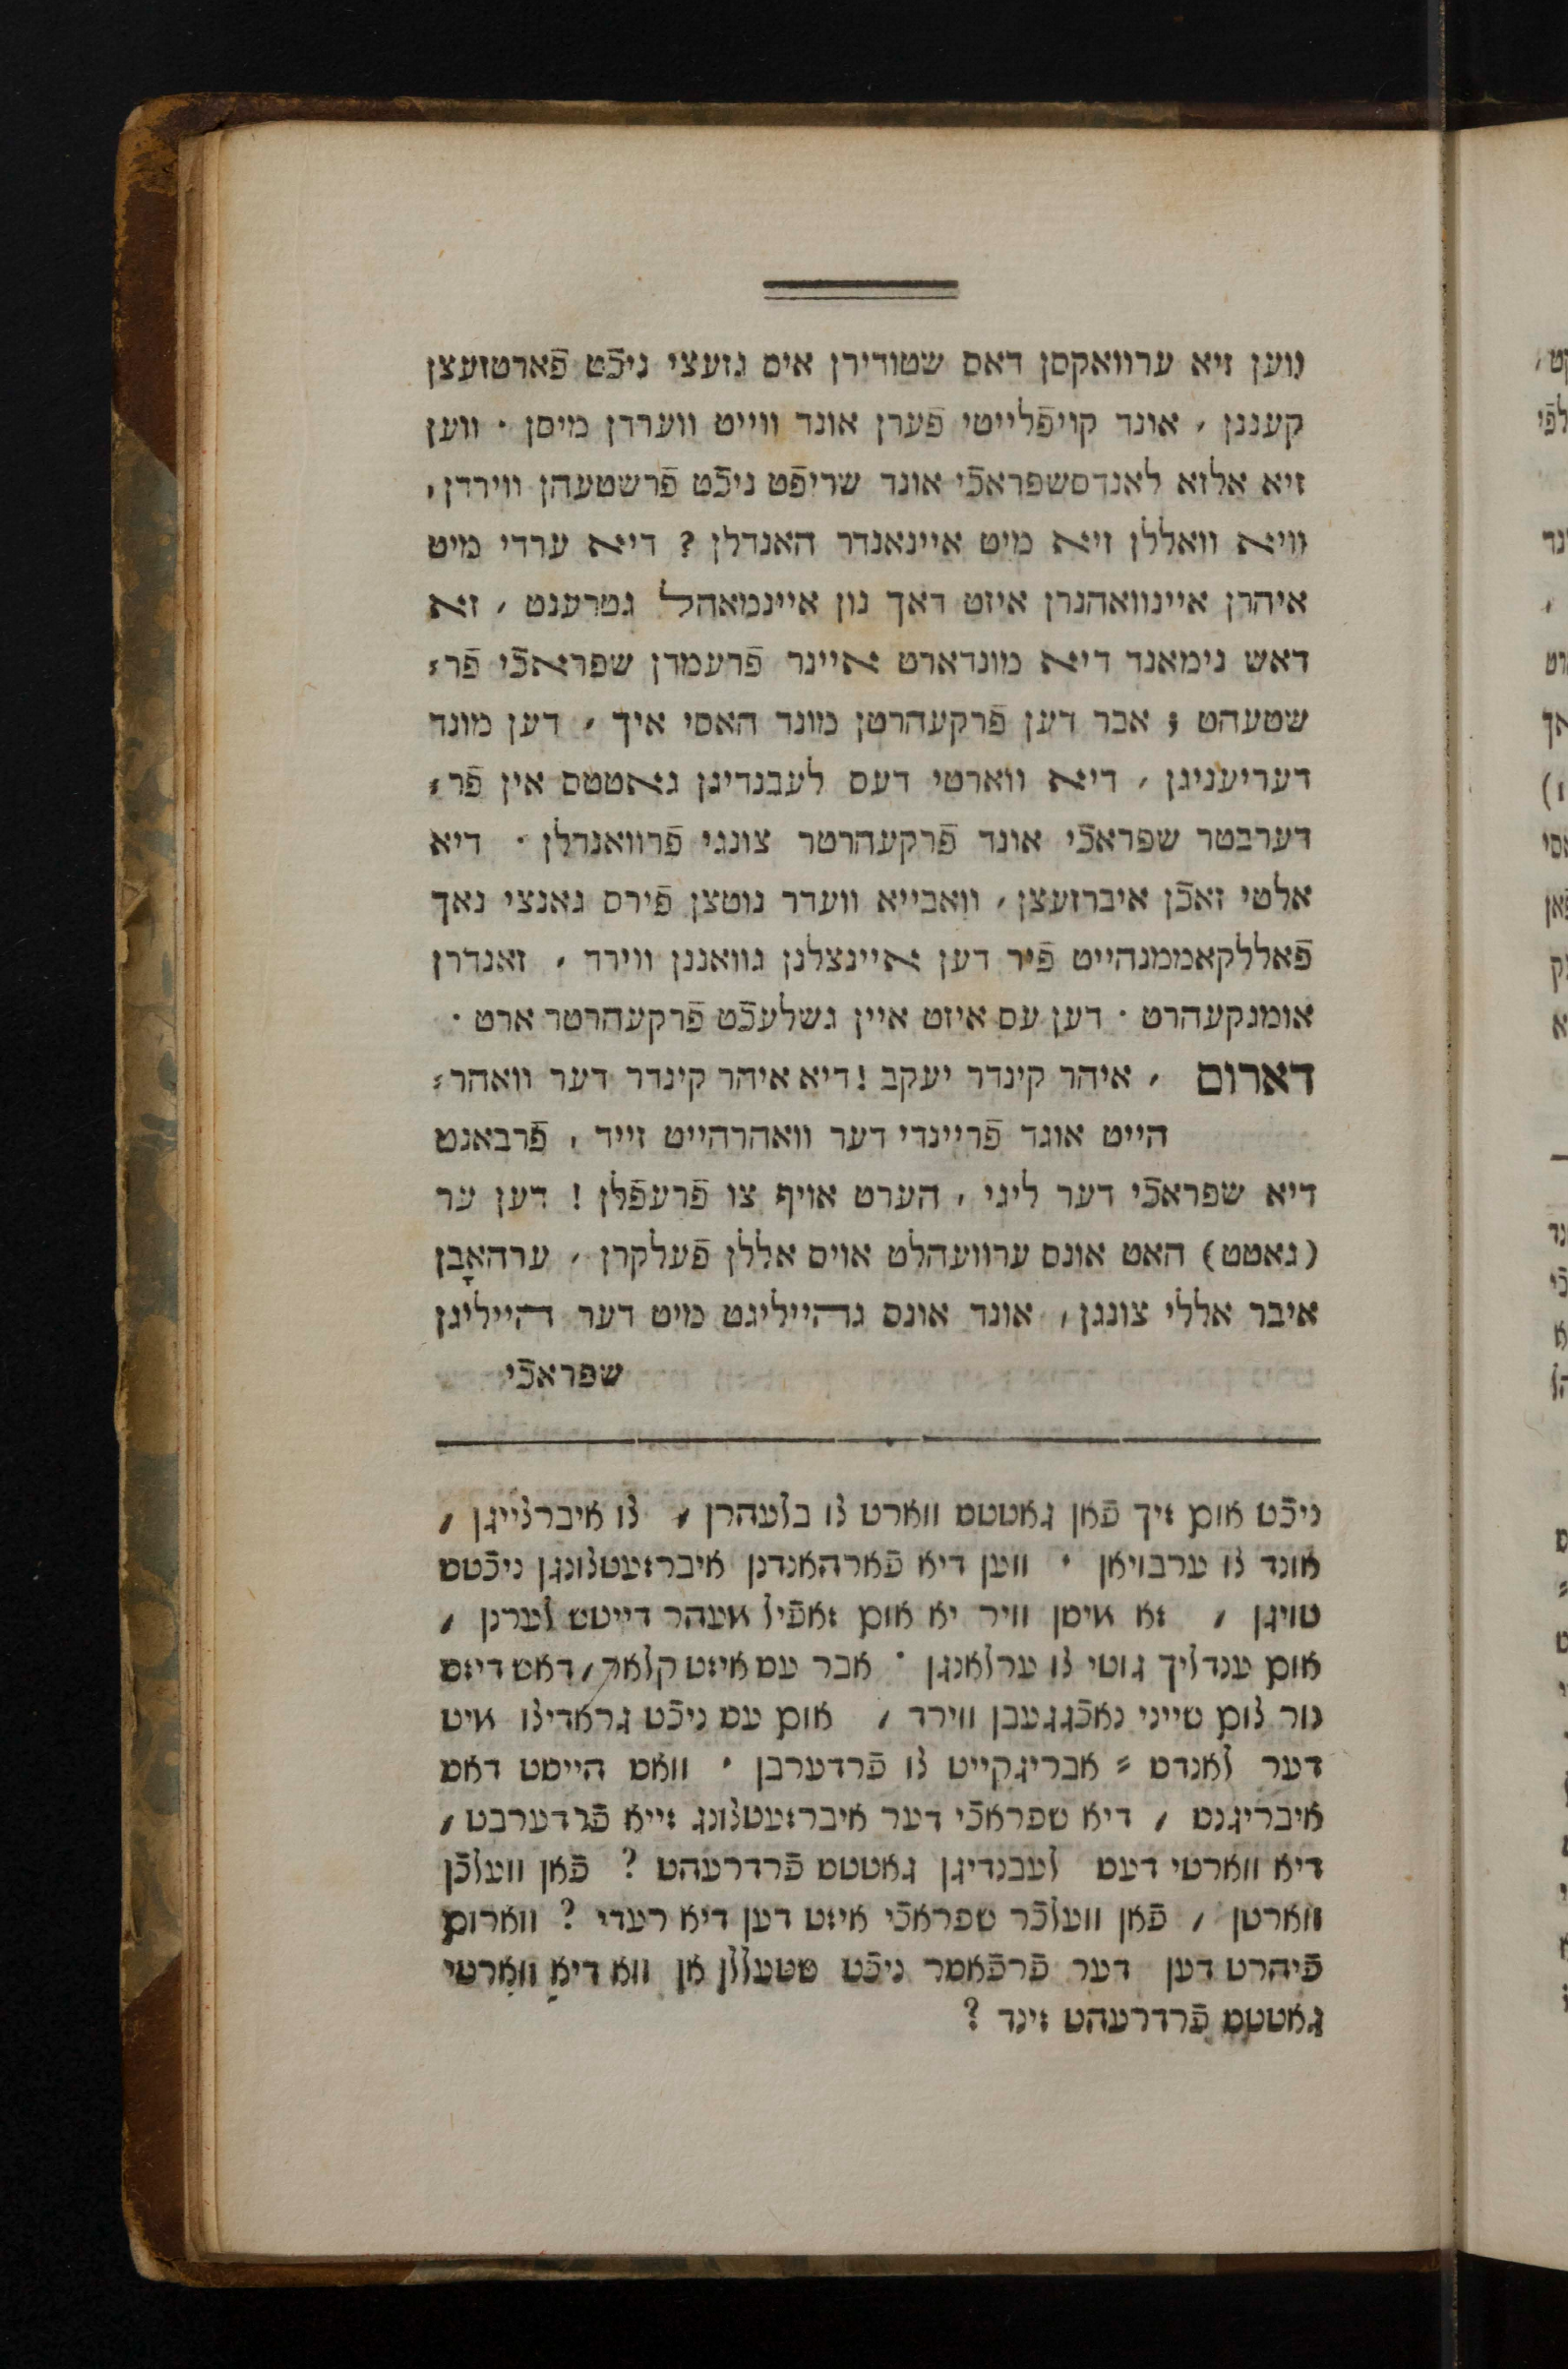 ווען זיא ערוואקסן דאס שטודירן אים גזעצי ניכֿט פֿארטזעצן
קעננן , אונד קויפֿלייטי פֿערן אונד ווייט ווערדן מיסן · ווען
זיא אלזא לאנדסשפראכֿי אונד שריפֿט ניכֿט פֿרשטעהן ווירדן ,
וויא וואללן זיא מיט איינאנדר האנדלן ? דיא ערדי מיט
איהרן איינוואהנרן איזט דאך נון איינמאהל גטרענט , זא
דאש נימאנד דיא מונדארט איינר פֿרעמדן שפראכֿי פֿר⸗
שטעהט ; אבר דען פֿרקעהרטן מונד האסי איך , דען מונד
דעריעניגן , דיא ווארטי דעס לעבנדיגן גאטטס אין פֿר⸗
דערבטר שפראכֿי אונד פֿרקעהרטר צונגי פֿרוואנדלן · דיא
אלטי זאכֿן איברזעצן , וואבייא וועדר נוטצן פֿירס גאנצי נאך
פֿאללקאממנהייט פֿיר דען איינצלנן גוואננן ווירד , זאנדרן
אומגקעהרט · דען עס איזט איין גשלעכֿט פֿרקעהרטר ארט ·
דארום , איהר קינדר יעקב ! דיא איהר קינדר דער וואהר⸗
הייט אונד פֿריינדי דער וואהרהייט זייד , פֿרבאנט
דיא שפראכֿי דער ליגי , הערט אויף צו פֿרעפֿלן ! דען ער
(גאטט) האט אונס ערוועהלט אויס אללן פֿעלקרן , ערהאָבן
איבר אללי צונגן , אונד אונס גהייליגט מיט דער הייליגן
שפראכֿי
ניכֿט אום זיך פֿאן גאטטס ווארט צו בלעהרן , צו איברצייגן ,
אונד צו ערבויאן · ווען דיא פֿארהאנדנן איברזעטצונגן ניכֿטס
טויגן , זא מיסן וויר יא אום זאפֿיל מעהר דייטש לערנן ,
אום ענדליך גוטי צו ערלאנגן · אבר עס איזט קלאר , דאס דיזס
נור צום שייני נאכֿגגעבן ווירד , אום עס ניכֿט גראדיצו מיט
דער לאנדס ⸗ אבריגקייט צו פֿרדערבן · וואס הייסט דאס
איבריגנס , דיא שפראכֿי דער איברזעטצונג זייא פֿרדערבט ,
דיא ווארטי דעס לעבנדיגן גאטטס פֿרדרעהט ? פֿאן וועלכֿן
ווארטן , פֿאן וועלכֿר שפראכֿי איזט דען דיא רעדי ? ווארום
פֿיהרט דען דער פֿרפֿאסר ניכֿט שטעללן אן וואָ דיא ווארטי
גאטטס פֿרדרעהט זינד ?